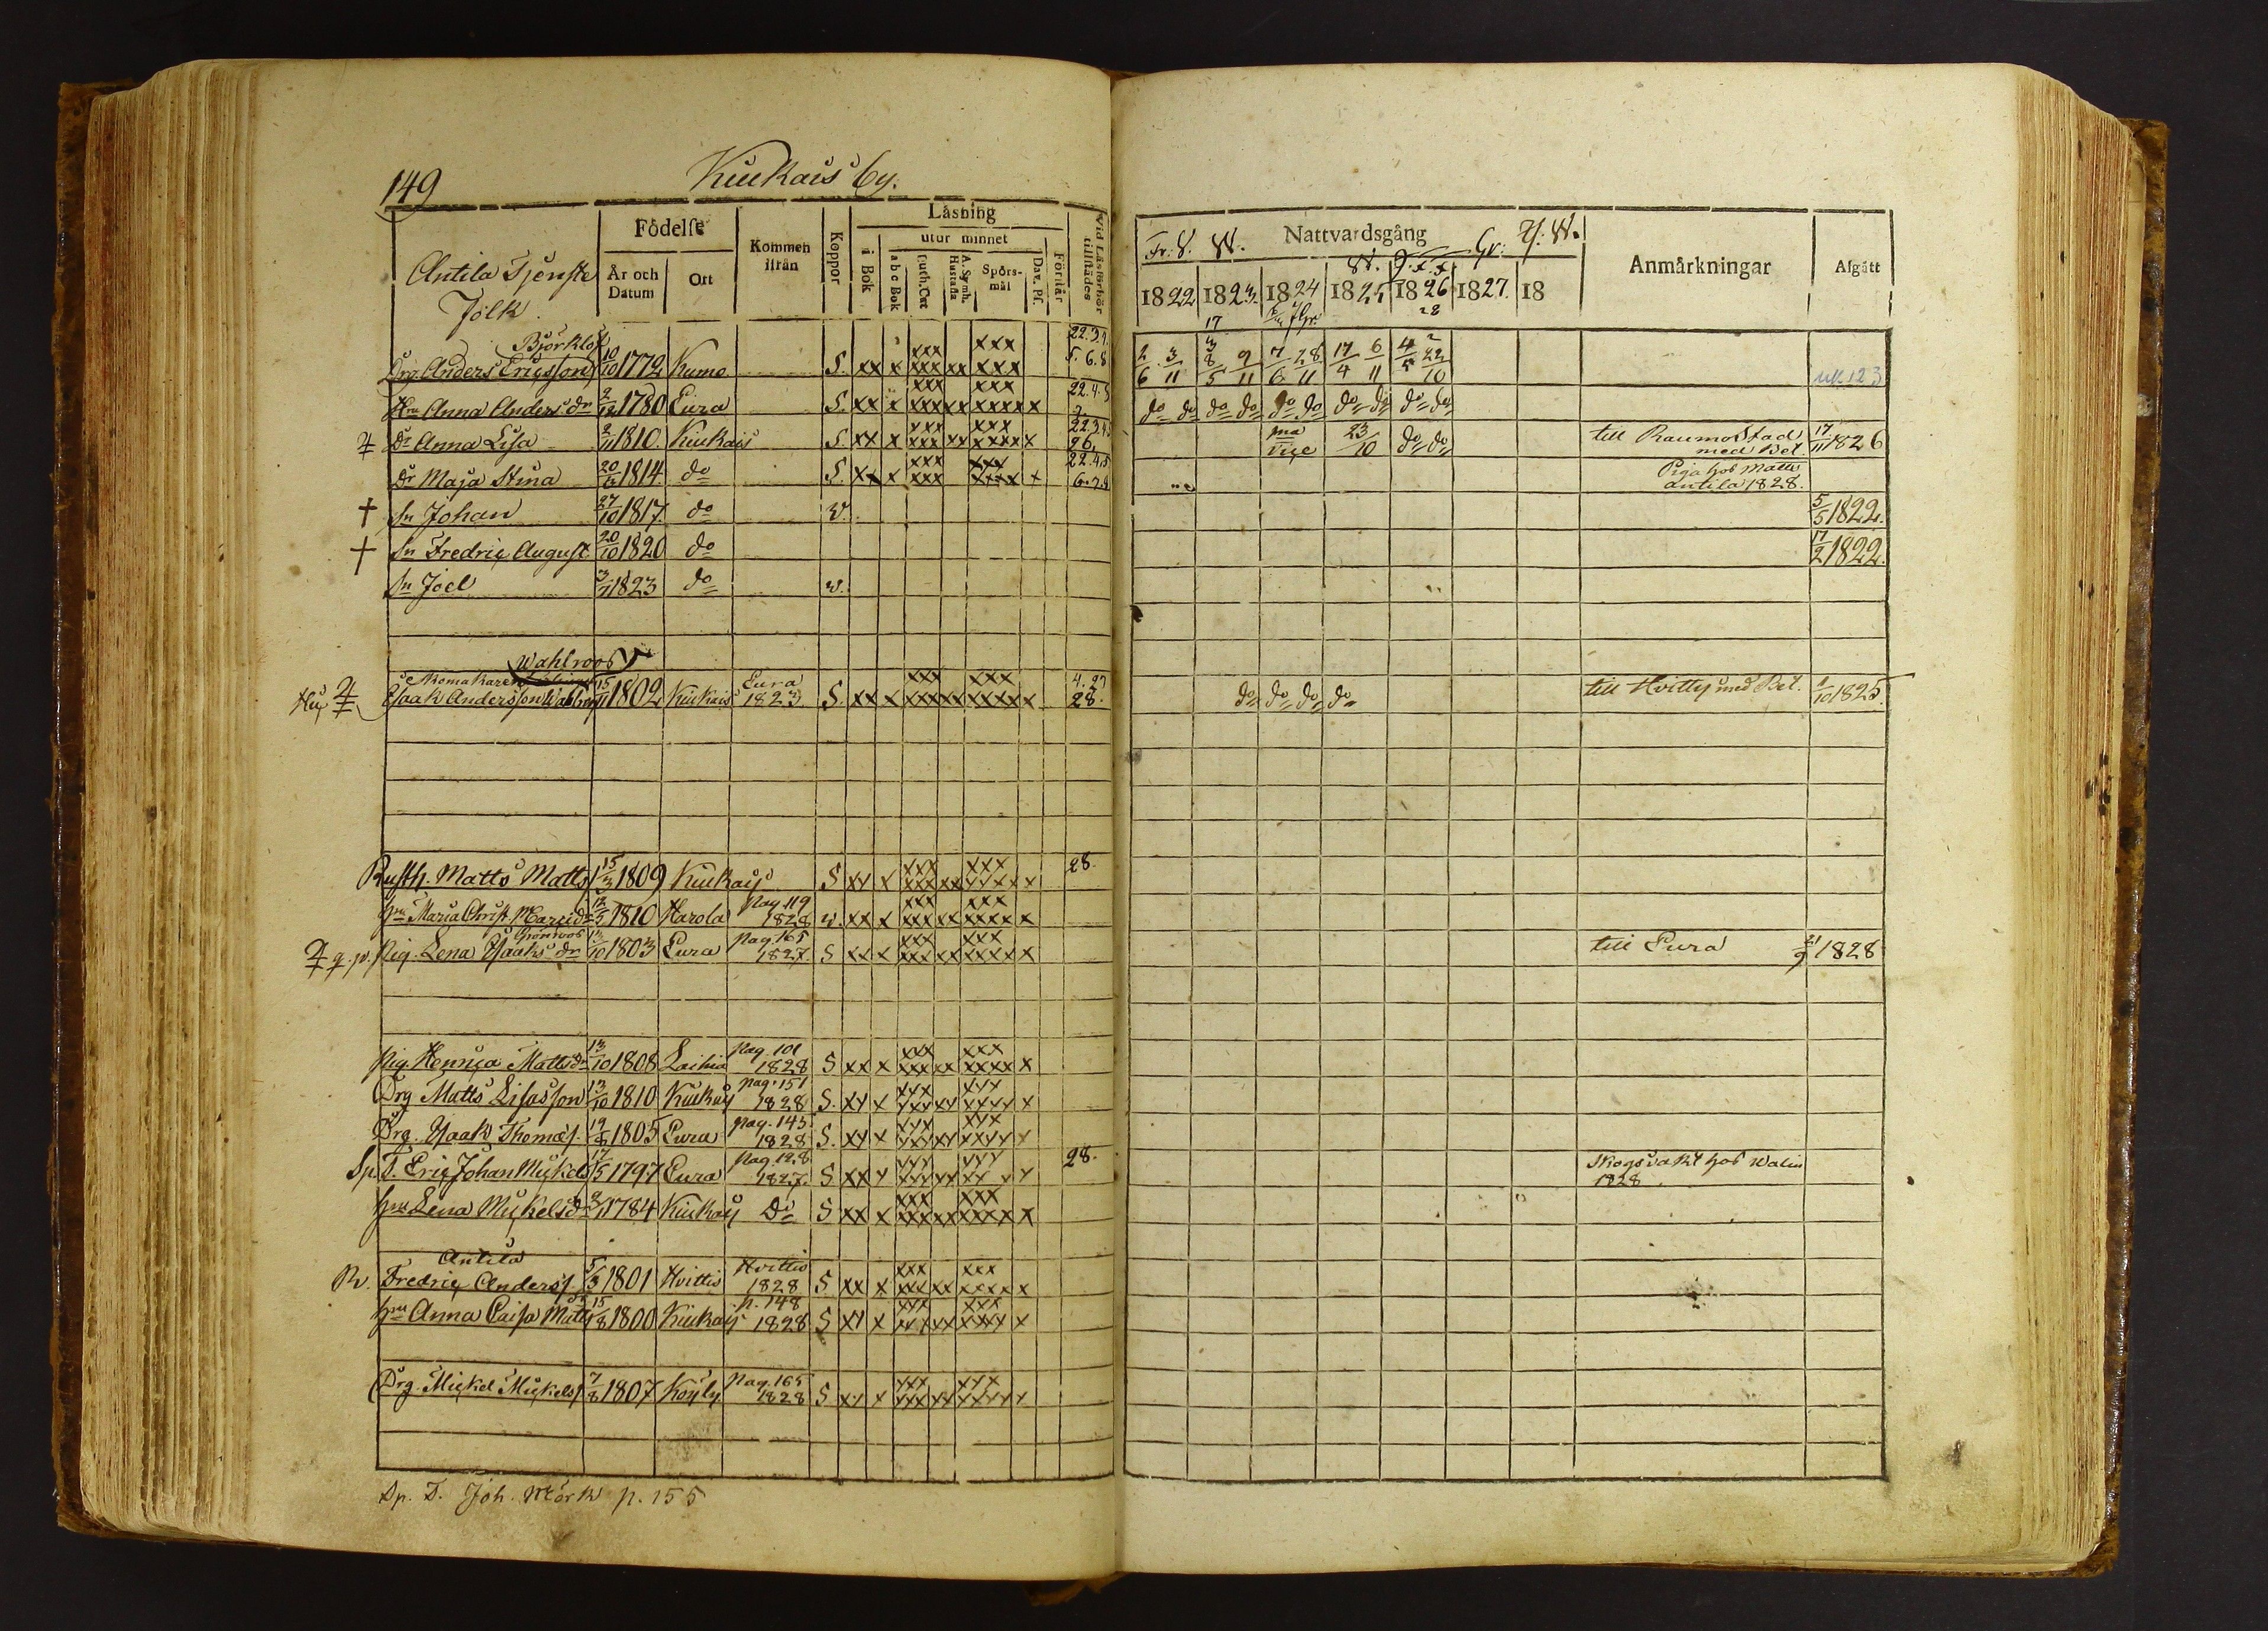 149
Kiukais by.
Antila Tjenste
Folk.
Födelse
År och Datum
Ort
Kommen ifrån
Koppor
Läsning
i Bok
utur minnet
a b c Bok
Luth. Cat
A. Symb. Hustafla
Spörsmål
Dav. Ps.
Förstår
Vid Läsförhör tillstädes
Nattvardsgång
1822 1823 1824 1825 1826 1827 18
Anmärkningar
Afgått
Björklöf
Drg. Anders Ericsson 10/10 1772 Kumo S. xx x xxx xxx xx xxx xxx 22.3.4. 5.6.8 2/6 3/11 9/11 7/6 28/11 17/4 6/11 22/10
Hu Anna Anders dr 2/12 1780 Eura S. xx x xxx xxx xx xxx xxxx x 22.4.5 do do do do do do do do do do
Dr Anna Lisa 2/11 1810. Kiukais S. xx x xxx xxx xx xxx xxxx x 26. ma vice 23/10 do do till Raumo Stad med Bet. 17/11 1826
Dr Maja Stina 1814 do S. xx x xxx xxx xxx xxxx x 22.4.5 6.7.8 Piga hos Matts Antila 1828.
† Sn Johan 27/10 1817 do v. 5/5 1822.
† Sn Fredric August. 20/10 1820 do 17/2 1822.
Sn Joel 1823 do v.
Wahlroos
Skomakaren
Isaak Andersson 1802 Kiukais Eura 1823 S. xx x xxx xxx xx xxx xxxx x 4.27 28. do do do do till Hvittis med Bet. 1/10 1825.
Rusth. Matts Matts 15/3 1809 Kiukais S xx x xxx xxx xx xxx xxxx x 28.
Hu Maria Christ. 12/5 1810 Harola pag 119 1828 v. xx x xxx xxx xx xxx xxxx x
Grönroos
Pig. Lena Isaaks dr 1803 Eura pag. 165 1827 S xx x xxx xxx xx xxx xxxx x till Eura 21/9 1828
Pig. Henrica Mattsdr 13/10 1808 Laihia pag. 101 1828 S xx x xxx xxx xx xxx xxxx x
Drg Matts Lisasson 13/10 1810 Kiukais pag. 151 1828 S. xx x xxx xxx xx xxx xxxx x
Drg. Isaak Thomas. 1805 Eura pag. 145 1828 S. xx x xxx xxx xx xxx xxxx x
Sp. T. Eric Johan Mickels 17/5 1797 Eura pag. 128 1827. S xx x xxx xxx xx xxx xx x 28. Skogsvakt hos Walin 1828
Hu Lena Mickelsdr 1784 Kiukais Do S xx x xxx xxx xx xxx xxxx x
Antila
R. Fredric Anderss. 5/3 1801 Hvittis Hvittis 1828 S. xx x xxx xxx xx xxx xxxx x
Hu Anna Caisa Matts dr 15/8 1800 Kiukais p. 148 1828 S xx x xxx xxx xx xxx xxxx x
Drg. Mickel Mickels 7/8 1807 Köyly. pag. 165 1828 S xx x xxx xxx xx xxx xxxx x
Sp. T. Joh. Mörk p. 155